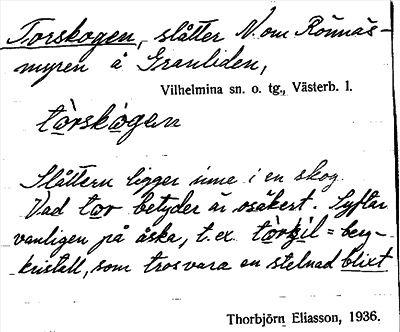 Torskogen, slåtter N. om Rönnäs-
myren å Granliden,
Vilhelmina sn. o. tg., Västerb. l.
tòrskògen
Slåttern ligger inne i en skog.
Vad tor betyder är osäkert. Syftar
vanligen på åska, t. ex. tòrkil = berg-
kristall, som tros vara en stelnad blixt
Thorbjörn Eliasson, 1936.